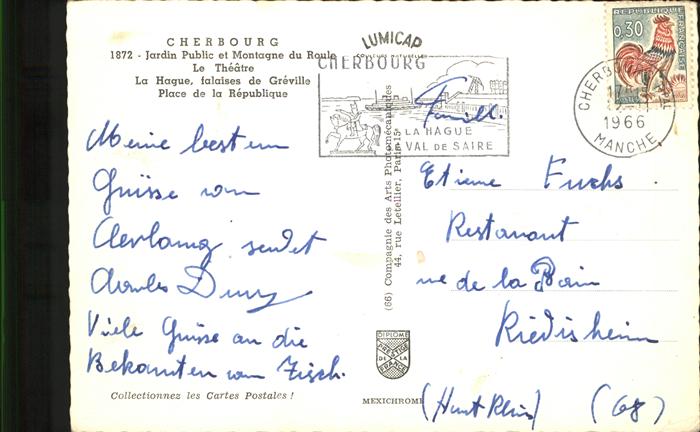 CHERBOURG
1872 - Jardin Public et Montagne du Roule
Le Théâtre
La Hague, falaises de Gréville
Place de la République
LUMICAP
CHERBOURG
LA HAGUE
VAL DE SAIRE
REPUBLIQUE FRANÇAISE
0,30
POSTES
CHERBOURG
17H
1966
MANCHE
Meine besten
Grüsse von
sendet
Charles
Viele Grüsse an die
Bekannten vom Tisch.
Collectionnez les Cartes Postales !
(66) Compagnie des Arts Photomécaniques
44, rue Letellier, Paris-15e
DIPLOME
PRESTIGE
DE LA
FRANCE
MEXICHROME
Famille
Etienne Fuchs
Restaurant
rue de la Bain
Riedisheim
(Haut Rhin) (68)